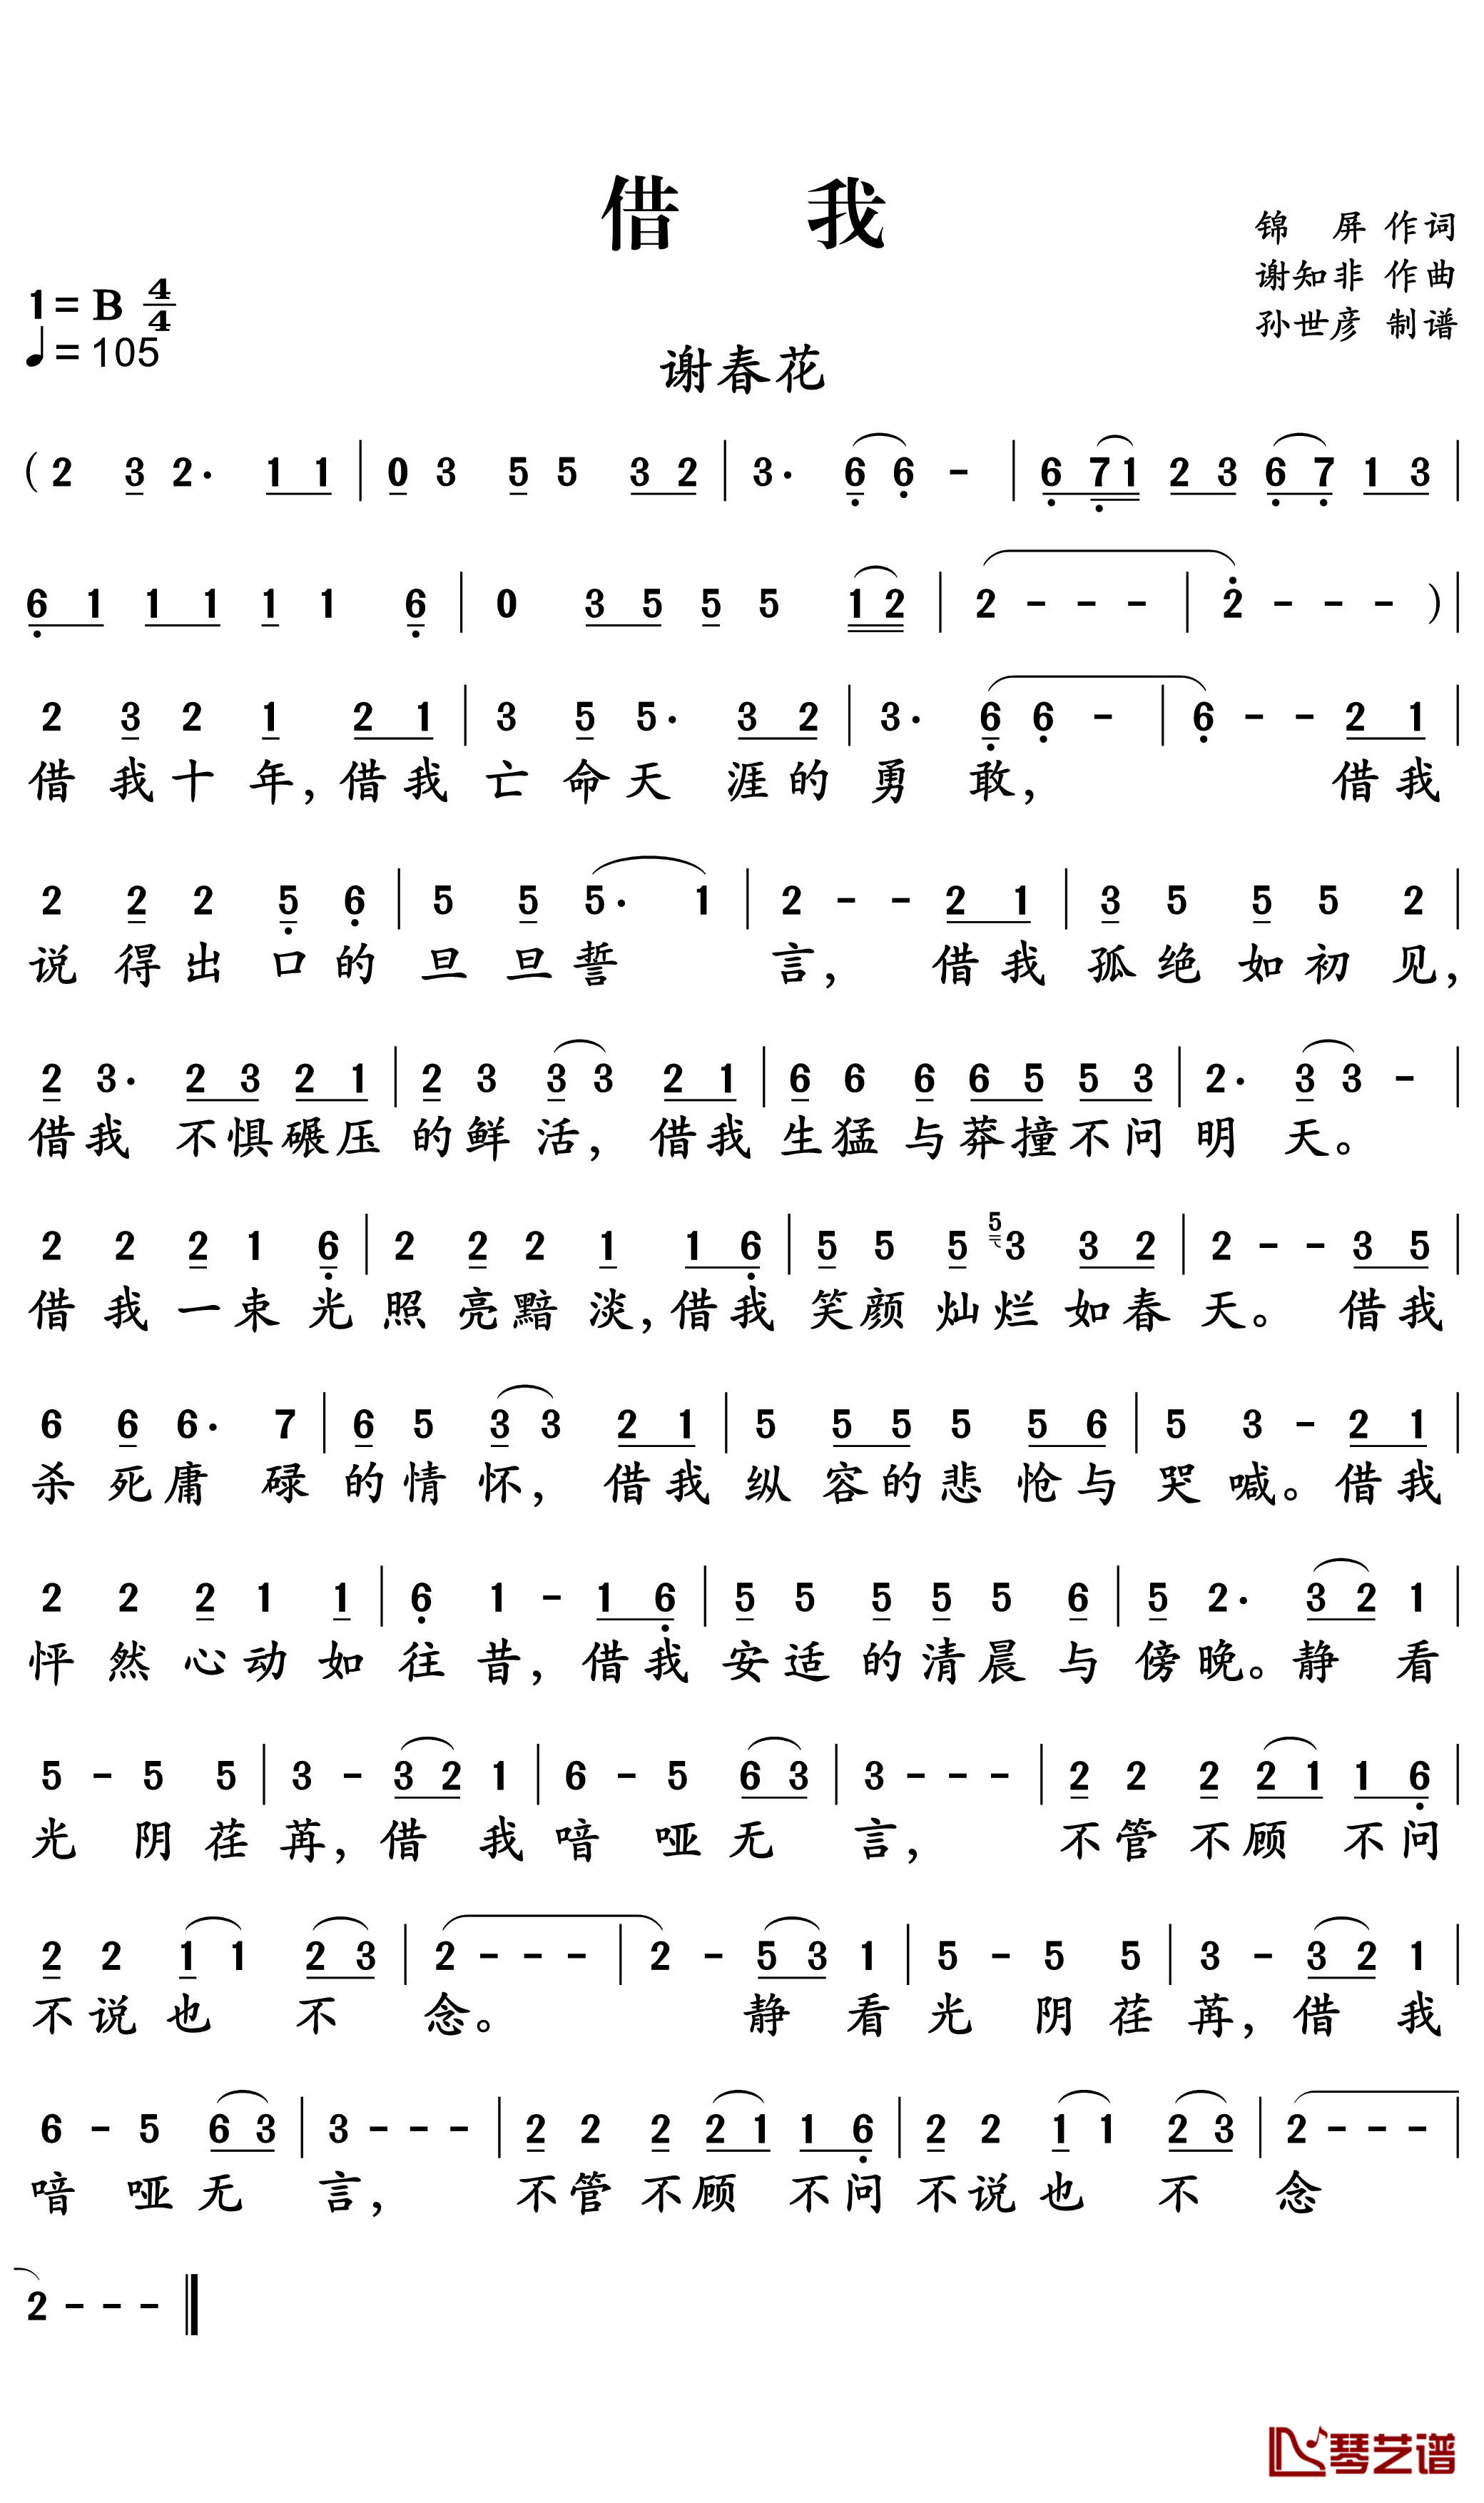 借 我
锦 屏 作词
谢知非 作曲
孙世彦 制谱
1=B 4/4
♩=105
谢春花
(2 3 2· 1 1 | 0 3 5 5 3 2 | 3· 6 6 - | 6 7 1 2 3 6 7 1 3 |
6 1 1 1 1 1 6 | 0 3 5 5 5 1 2 | 2 - - - | 2 - - - ) |
2 3 2 1 2 1 | 3 5 5· 3 2 | 3· 6 6 - | 6 - - 2 1 |
借我十年,借我亡命天涯的勇敢, 借我
2 2 2 5 6 | 5 5 5· 1 | 2 - - 2 1 | 3 5 5 5 2 |
说得出口的旦旦誓言, 借我孤绝如初见,
2 3· 2 3 2 1 | 2 3 3 3 2 1 | 6 6 6 6 5 5 3 | 2· 3 3 - |
借我不惧碾压的鲜活, 借我生猛与莽撞不问明天。
2 2 2 1 6 | 2 2 2 1 1 6 | 5 5 5 5 3 3 2 | 2 - - 3 5 |
借我一束光照亮黯淡,借我笑颜灿烂如春天。 借我
6 6 6· 7 | 6 5 3 3 2 1 | 5 5 5 5 5 6 | 5 3 - 2 1 |
杀死庸碌的情怀, 借我纵容的悲怆与哭喊。借我
2 2 2 1 1 | 6 1 - 1 6 | 5 5 5 5 5 6 | 5 2· 3 2 1 |
怦然心动如往昔, 借我安适的清晨与傍晚。静看
5 - 5 5 | 3 - 3 2 1 | 6 - 5 6 3 | 3 - - - | 2 2 2 2 1 1 6 |
光阴荏苒,借我喑哑无言, 不管不顾不问
2 2 1 1 2 3 | 2 - - - | 2 - 5 3 1 | 5 - 5 5 | 3 - 3 2 1 |
不说也不念。 静看光阴荏苒,借我
6 - 5 6 3 | 3 - - - | 2 2 2 2 1 1 6 | 2 2 1 1 2 3 | 2 - - - |
喑哑无言, 不管不顾不问不说也不念
2 - - - ‖
琴艺谱